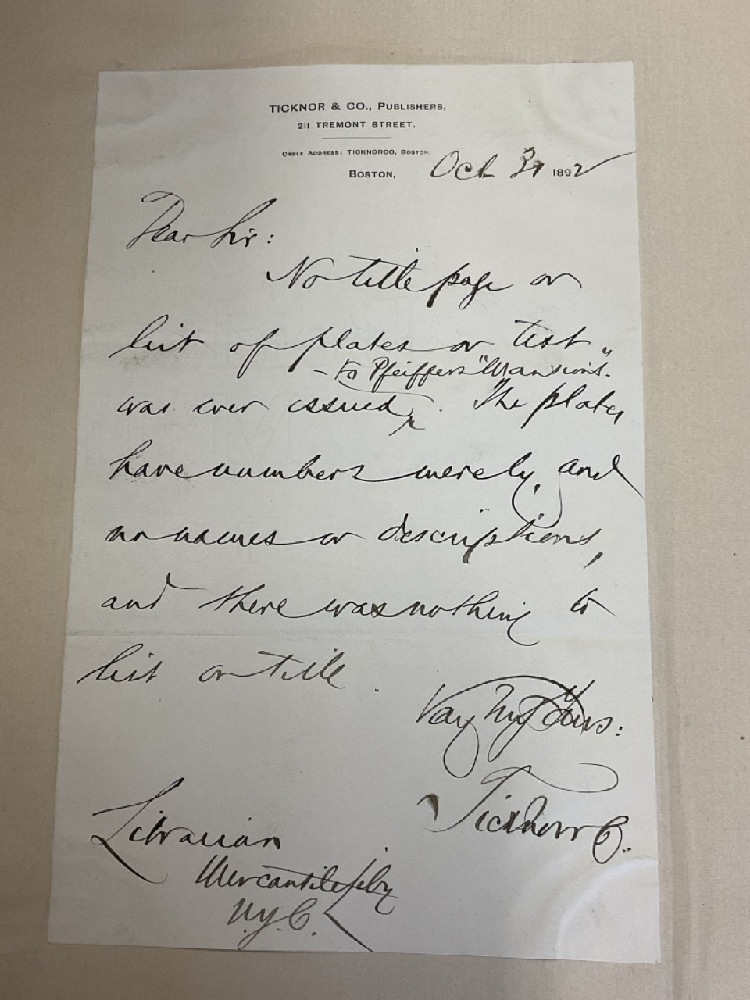 TICKNOR & CO., PUBLISHERS,
211 TREMONT STREET.
CABLE ADDRESS: TICKNORCO, BOSTON.
BOSTON, Oct 1892
Dear Sir:
No title page or
list of plates or text
- to Pfeiffer's "Mansions".
was ever issued. The plates
have numbers merely, and
no names or descriptions,
and there was nothing to
list or title.
Very Truly Yours:
Ticknor & Co.
Librarian
Mercantile Liby
N.Y.C.